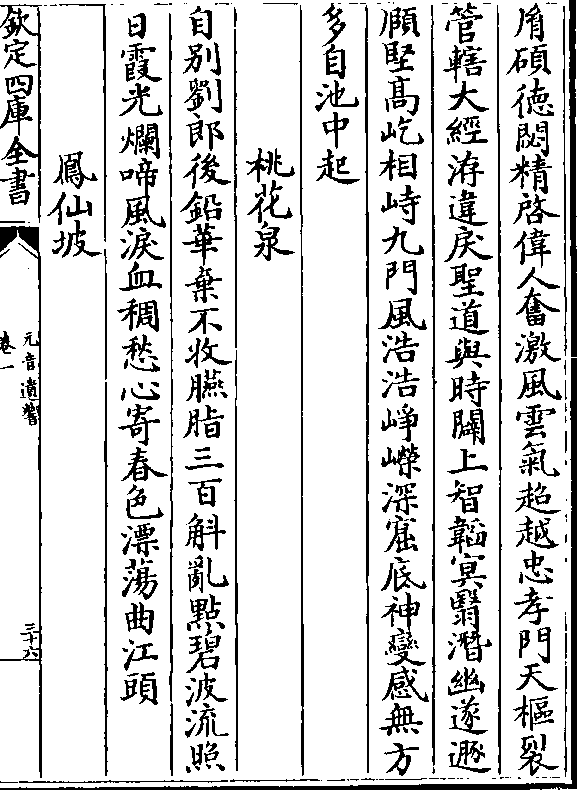 胥碩徳閟精啓偉人奮激風雲氣超越忠孝門天樞裂
管轄大經洊違戾聖道與時闢上智韜冥翳潛幽遂遯
頋堅高屹相峙九門風浩浩崢嶸深窟底神變感無方
多自池中起
桃花泉
自别劉郎後鉛華棄不收臙脂三百斛亂點碧波流照
日霞光爛啼風淚血稠愁心寄春色漂蕩曲江頭
鳳仙坡
欽定四庫全書
元音遺響
卷一
三十六